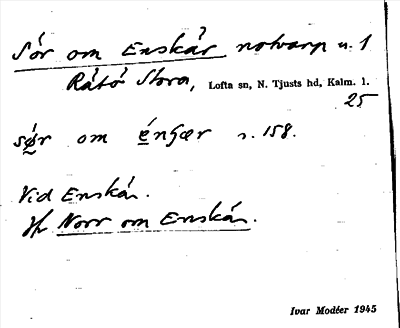 Sör om Enskär notvarp u. 1
Rätö Stora, Lofta sn, N. Tjusts hd, Kalm. l.
25
sør om énʃær s. 158.
Vid Enskär.
Jfr Norr om Enskär.
Ivar Modéer 1945